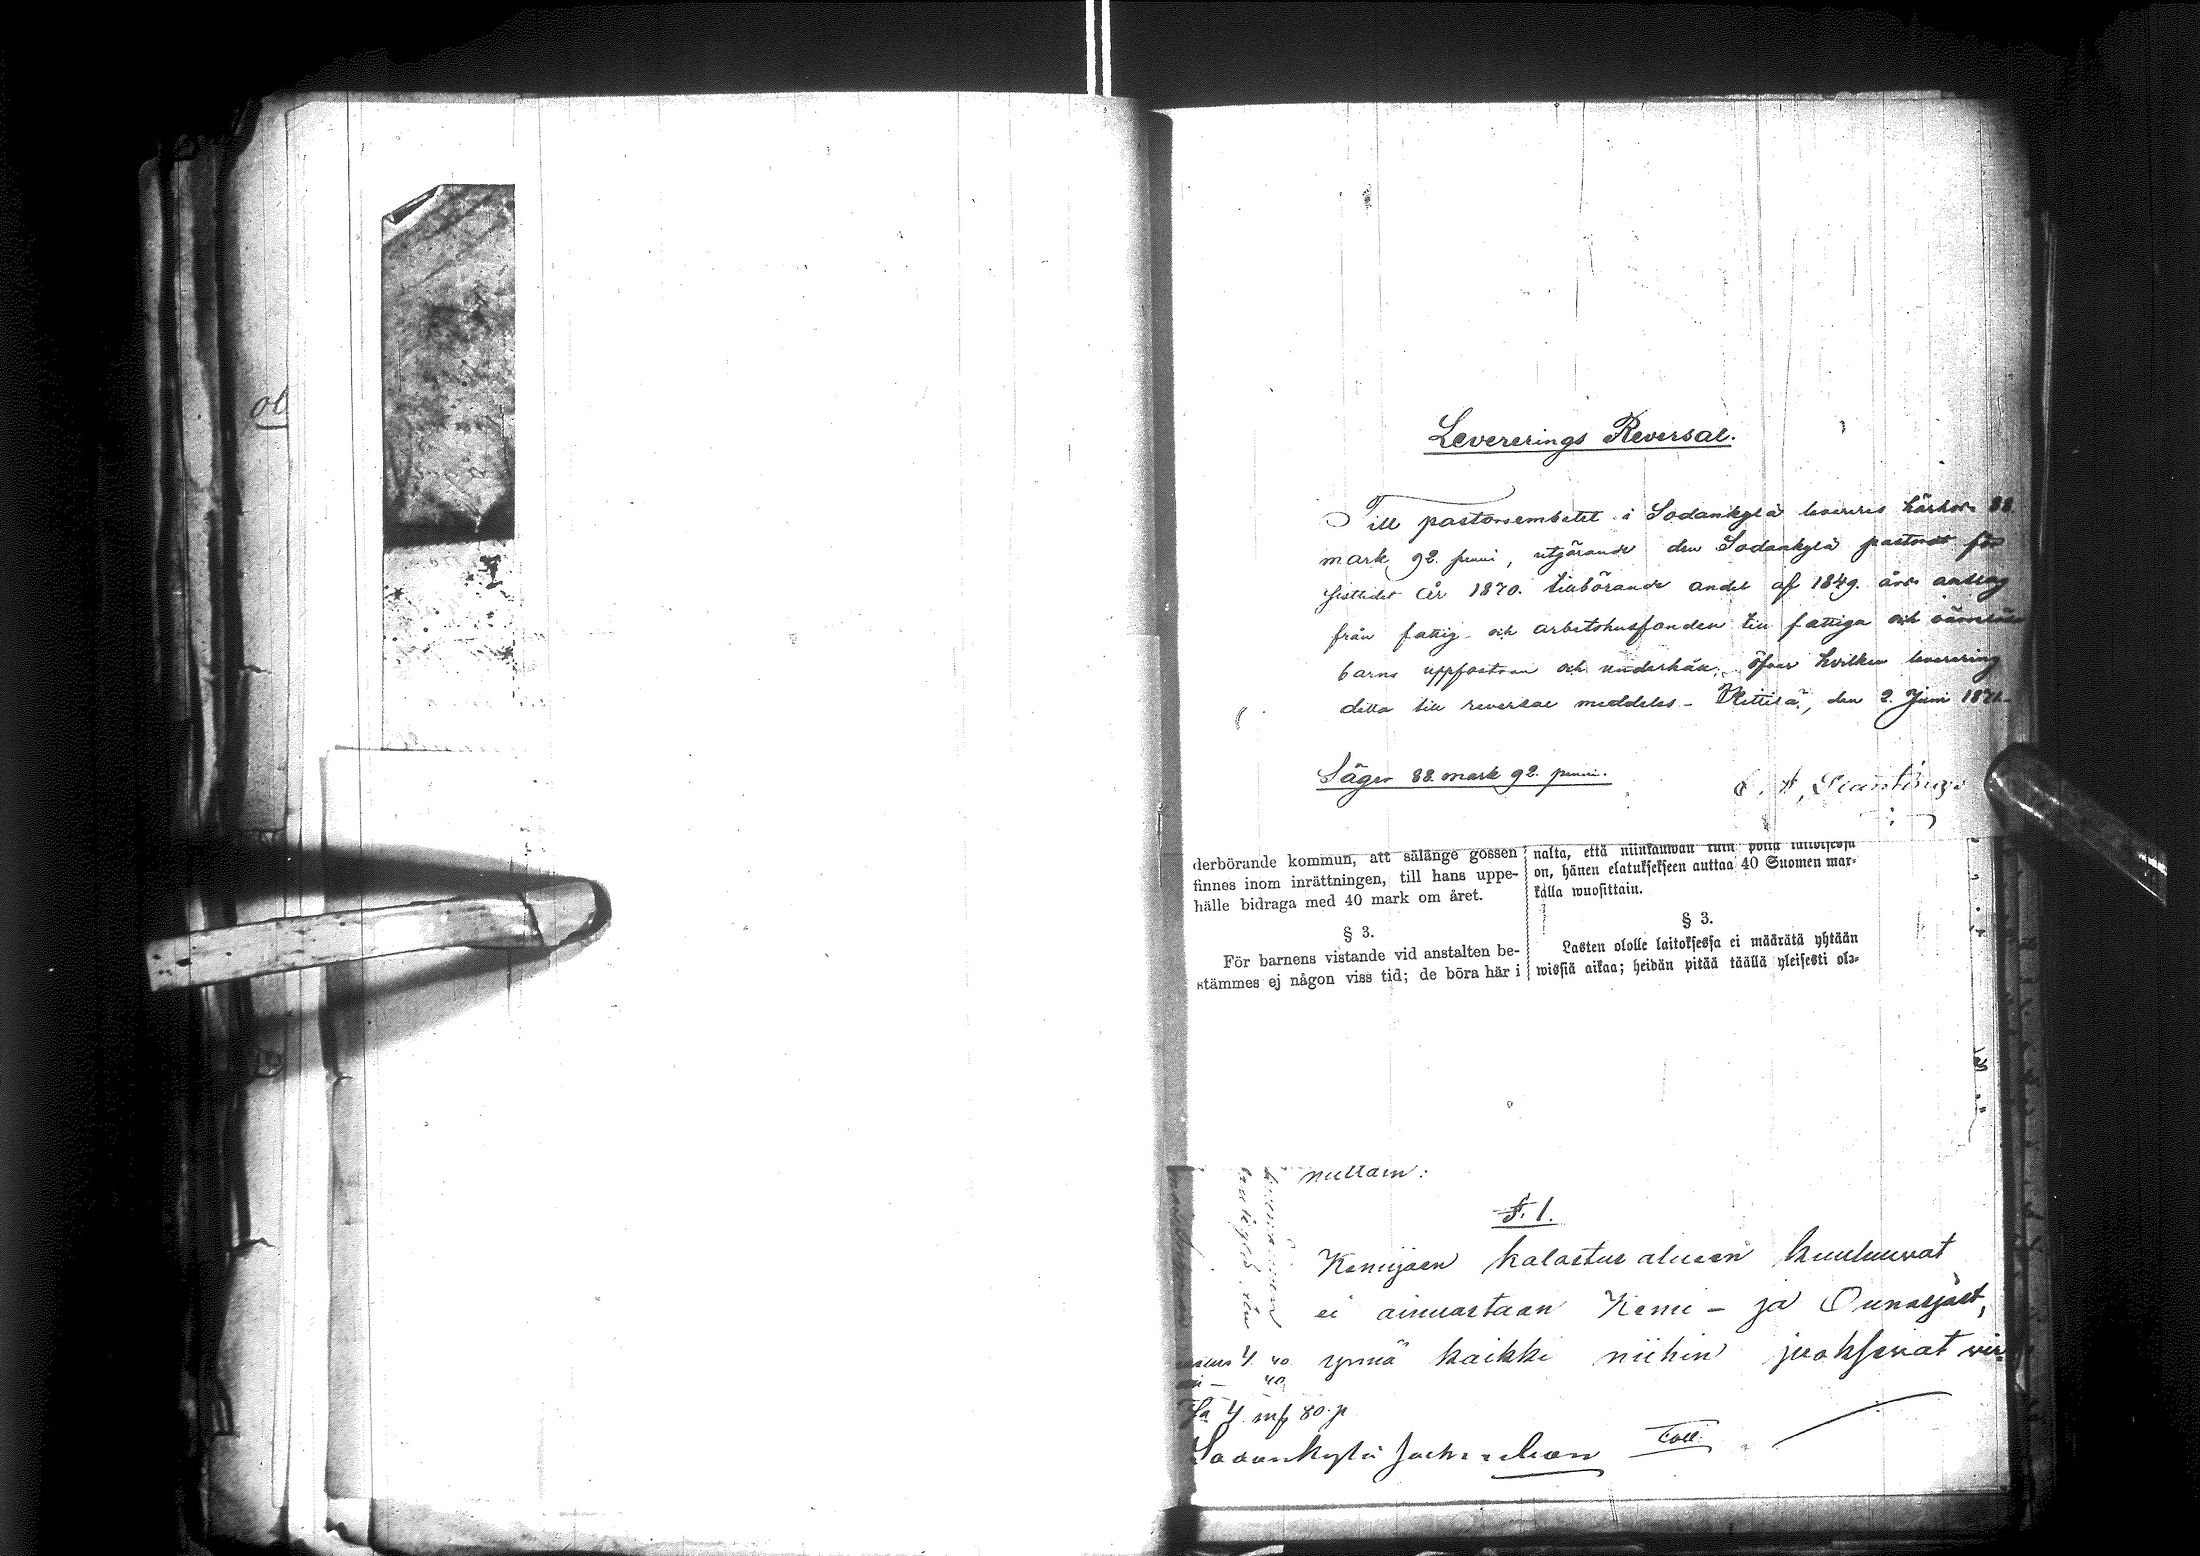 ol
Levererings Reversal.
Till pastorsembetet i Sodankylä levereras härhos 88
mark 92 penni, utgörande den Sodankylä pastorat för
sistledet år 1870 tillhörande andel af 1849 års anslag
från fattig och arbetshusfonden till fattiga och värnlösa
barns uppfostran och underhåll, öfver hvilken leverering
detta till reversal meddeles. Kittilä, den 2 Juni 1871.
Säger 88 mark 92 penni.
derbörande kommun, att sålänge gossen
finnes inom inrättningen, till hans uppe-
hälle bidraga med 40 mark om året.
§ 3.
För barnens vistande vid anstalten be-
stämmes ej någon viss tid; de böra här i
nalta, että niinkauwan kuin poika laitoksessa
on, hänen elatuksekseen auttaa 40 Suomen mar-
kalla wuosittain.
§ 3.
Lasten ololle laitoksessa ei määrätä yhtään
wissiä aikaa; heidän pitää täällä yleisesti ole-
nullain:
§. 1.
Kemijoen kalastus alueen kuuluwat
ei ainuastaan Kemi- ja Ounasjoet,
ynnä kaikki niihin juoksewat
4 40
40
Sa 4 mk 80 p
Sodankylä